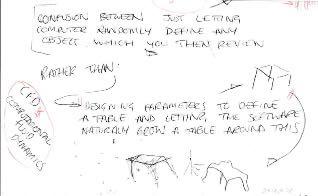 CONFUSION BETWEEN JUST LETTING
COMPUTER RANDOMLY DEFINE ANY
OBJECT WHICH YOU THEN REVIEW
RATHER THAN
DESIGNING PARAMETERS TO DEFINE
A TABLE AND LETTING THE SOFTWARE
NATURALLY GROW A TABLE AROUND THIS
CFD
COMPUTATIONAL
FLUID
DYNAMICS